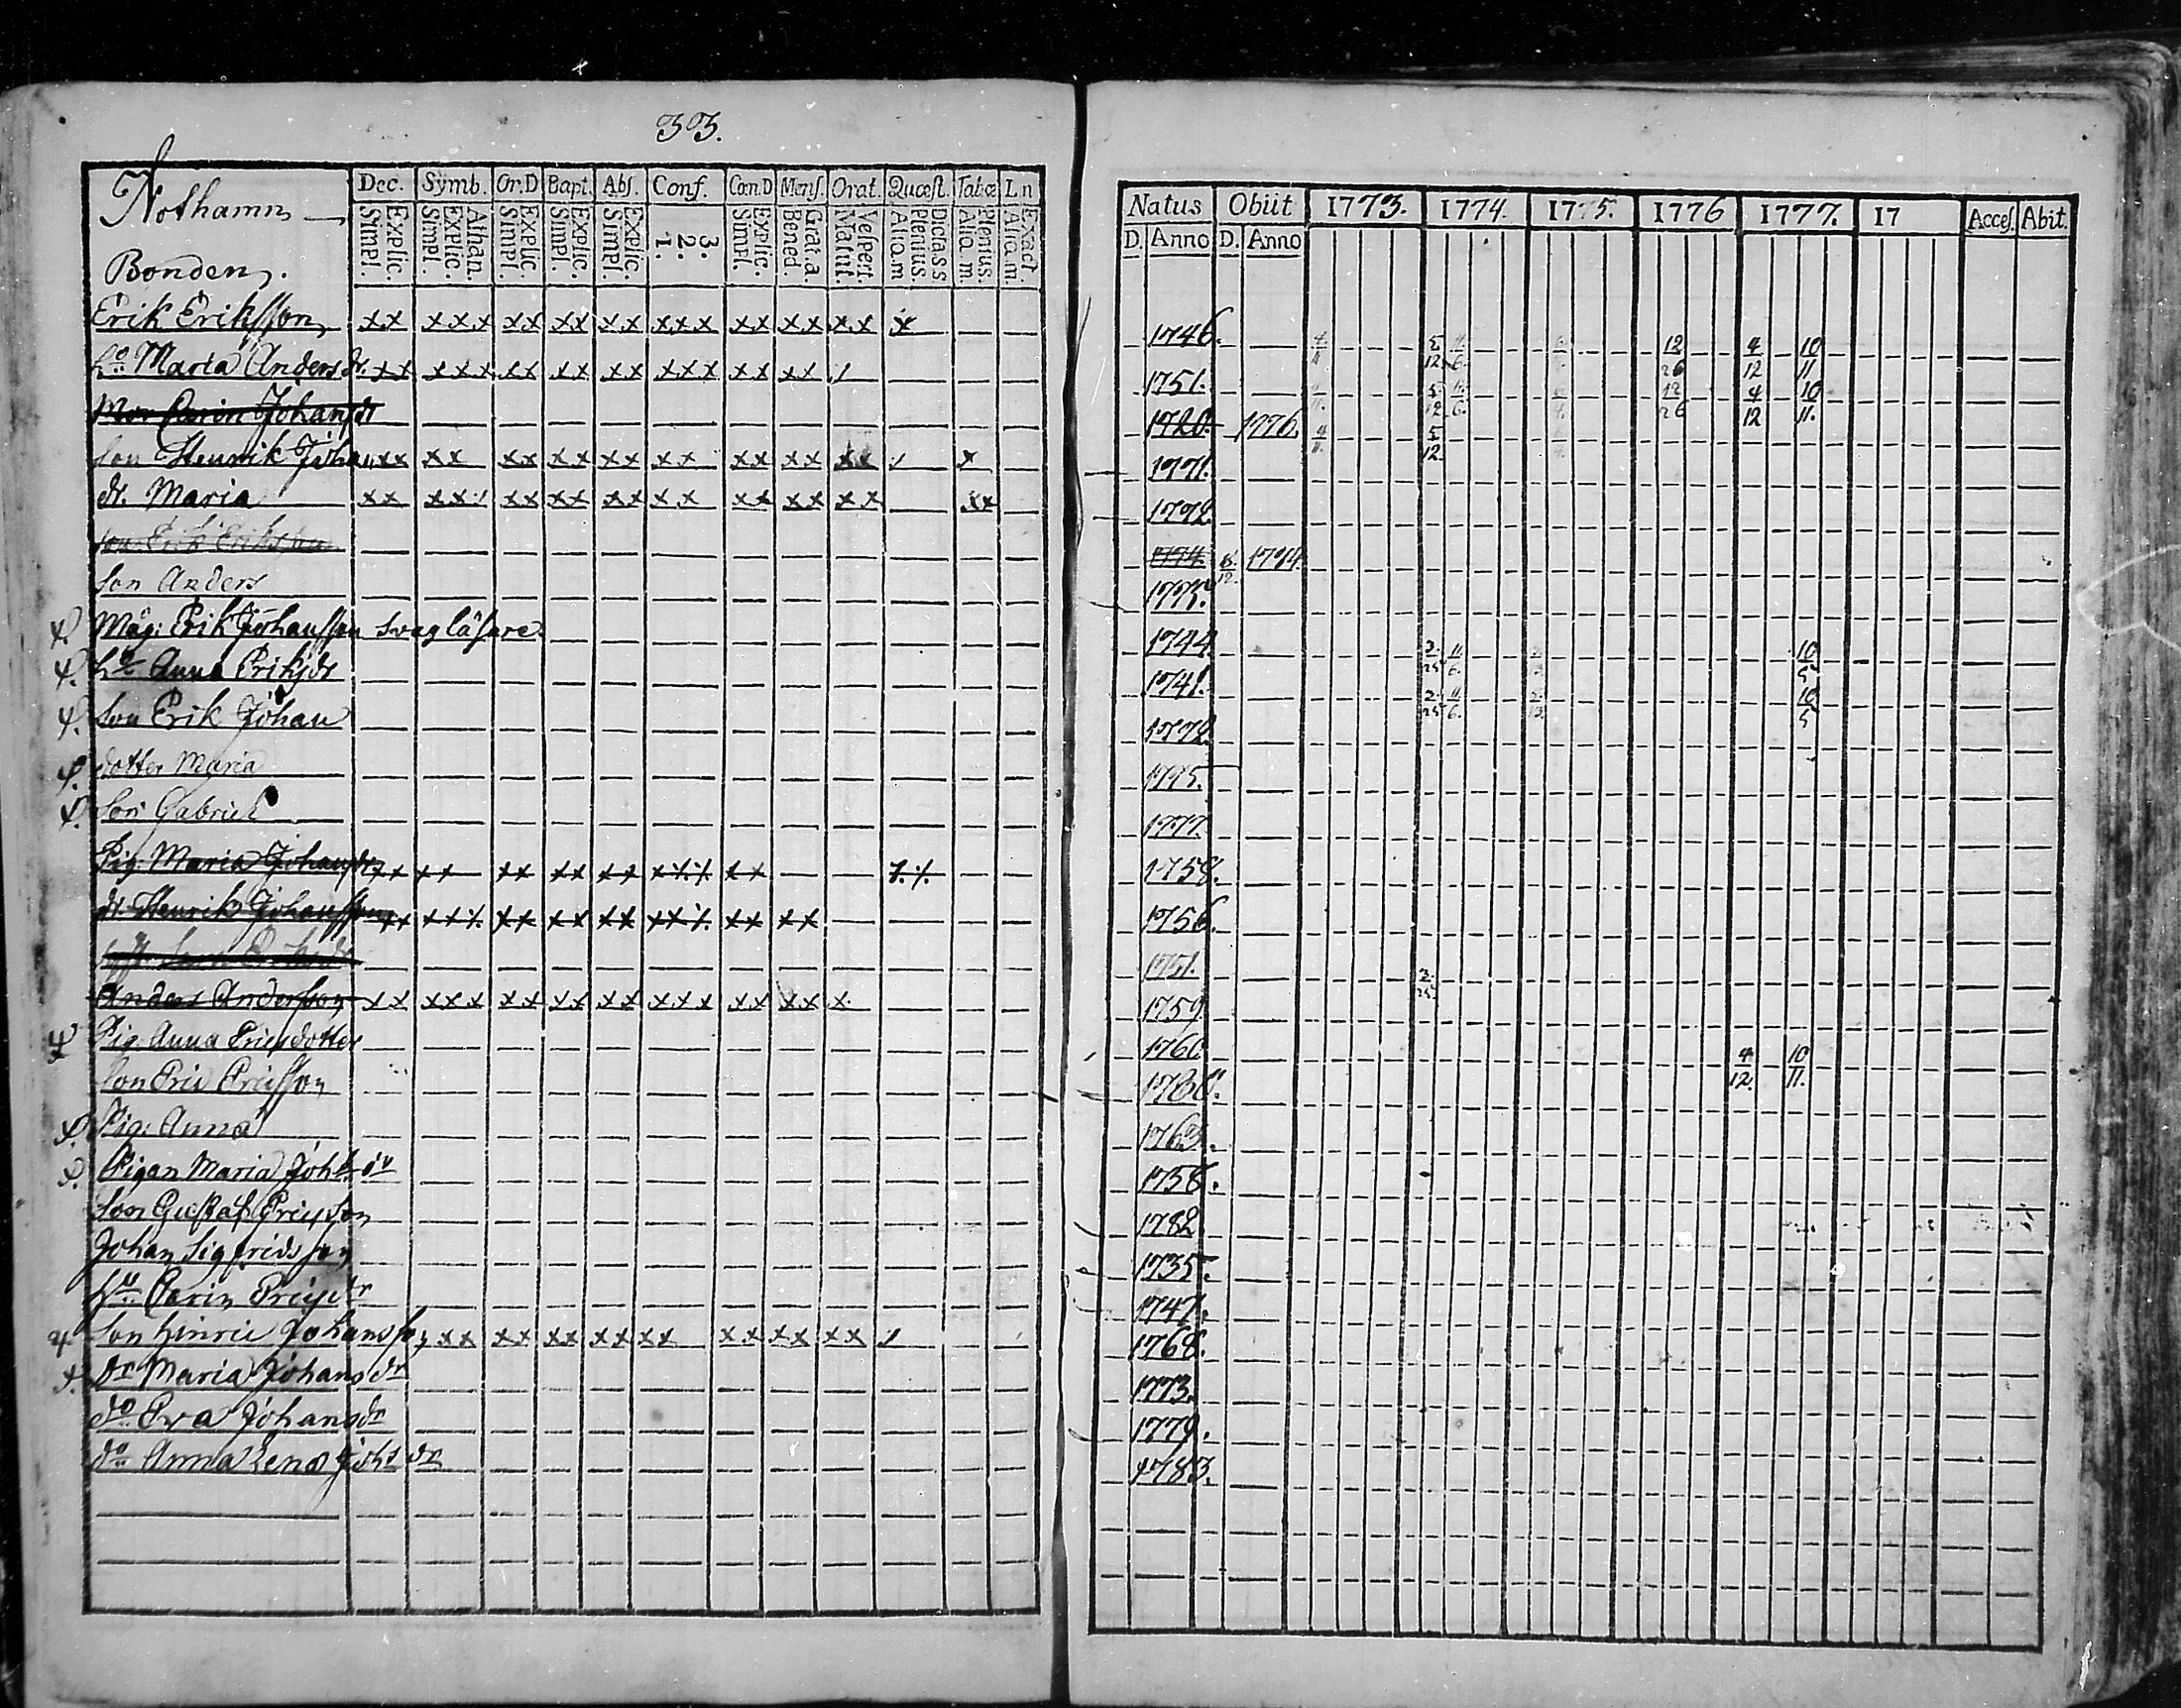 33.
Nothamn
Dec. Symb. Or.D Bapt. Abs. Conf. Com.D Mens. Orat. Quæst. Tabæ L n
Simpl. Explic. Simpl. Explic. Athan. Simpl. Explic. Simpl. Explic. Simpl. Explic. 1. 2. 3. Simpl. Explic. Bened. Grat.a. Matut. Vespert. Aliq.m. Plenius. Dict.a s s Aliq.m. Plenius. Aliq.m. Exact.
Bonden,
Erik Eriksson, xx xxx xx xx xx xxx xx xx xx x
Ho Maria Andersdr. xx xxx xx xx xx xxx xx xx /
Mor Carin Johansdr
Son Henrik Johan xx xx xx xx xx xx xx xx xx / x
dr. Maria xx xx xx xx xx xx xx xx xx xx
Son Erik Eriksson
Son Anders
Måg: Erik Johansson svag läsare
Ho Anna Eriksdr
Son Erik Johan
dotter Maria
Son Gabriel
Pig. Maria Johansdr xx xx xx xx xx xx
dr. Henrik Johansson xx xx xx xx xx xx xx
Anders Andersson xx xxx xx xx xx xxx xx xx x
Pig. Anna Ericsdotter
Son Eric Ericsson
Pig: Anna
Pigan Maria Joh dr
Son Gustaf Ericsson
Johan Sigfridsson
Hu Carin Ericsdr
Son Hinric Johansson xx xx xx xx xx xx xx xx /
dr Maria Johansdr
do Eva Johansdr
do Anna Lena Johs dr
Natus Obiit 1773. 1774. 1775. 1776 1777. 17 Acces. Abit.
D. Anno D. Anno
1746. 4/11 5/12 11/6 12/26 4/12 10/11
1751. 5/12 11/6. 12/26 4/12 10/11.
1720. 1776. 4/11. 5/12.
1771.
1772.
1774. 1774.
1775.
1744. 2/25 11/6. 10/5
1741. 2/25 11/6. 2/13 10/5
1772
1775.
1777
1758.
1756.
1751. 2/25.
1759
1760 4/12. 10/11.
1763.
1758.
1782
1735.
1747.
1768.
1773.
1779.
1783.